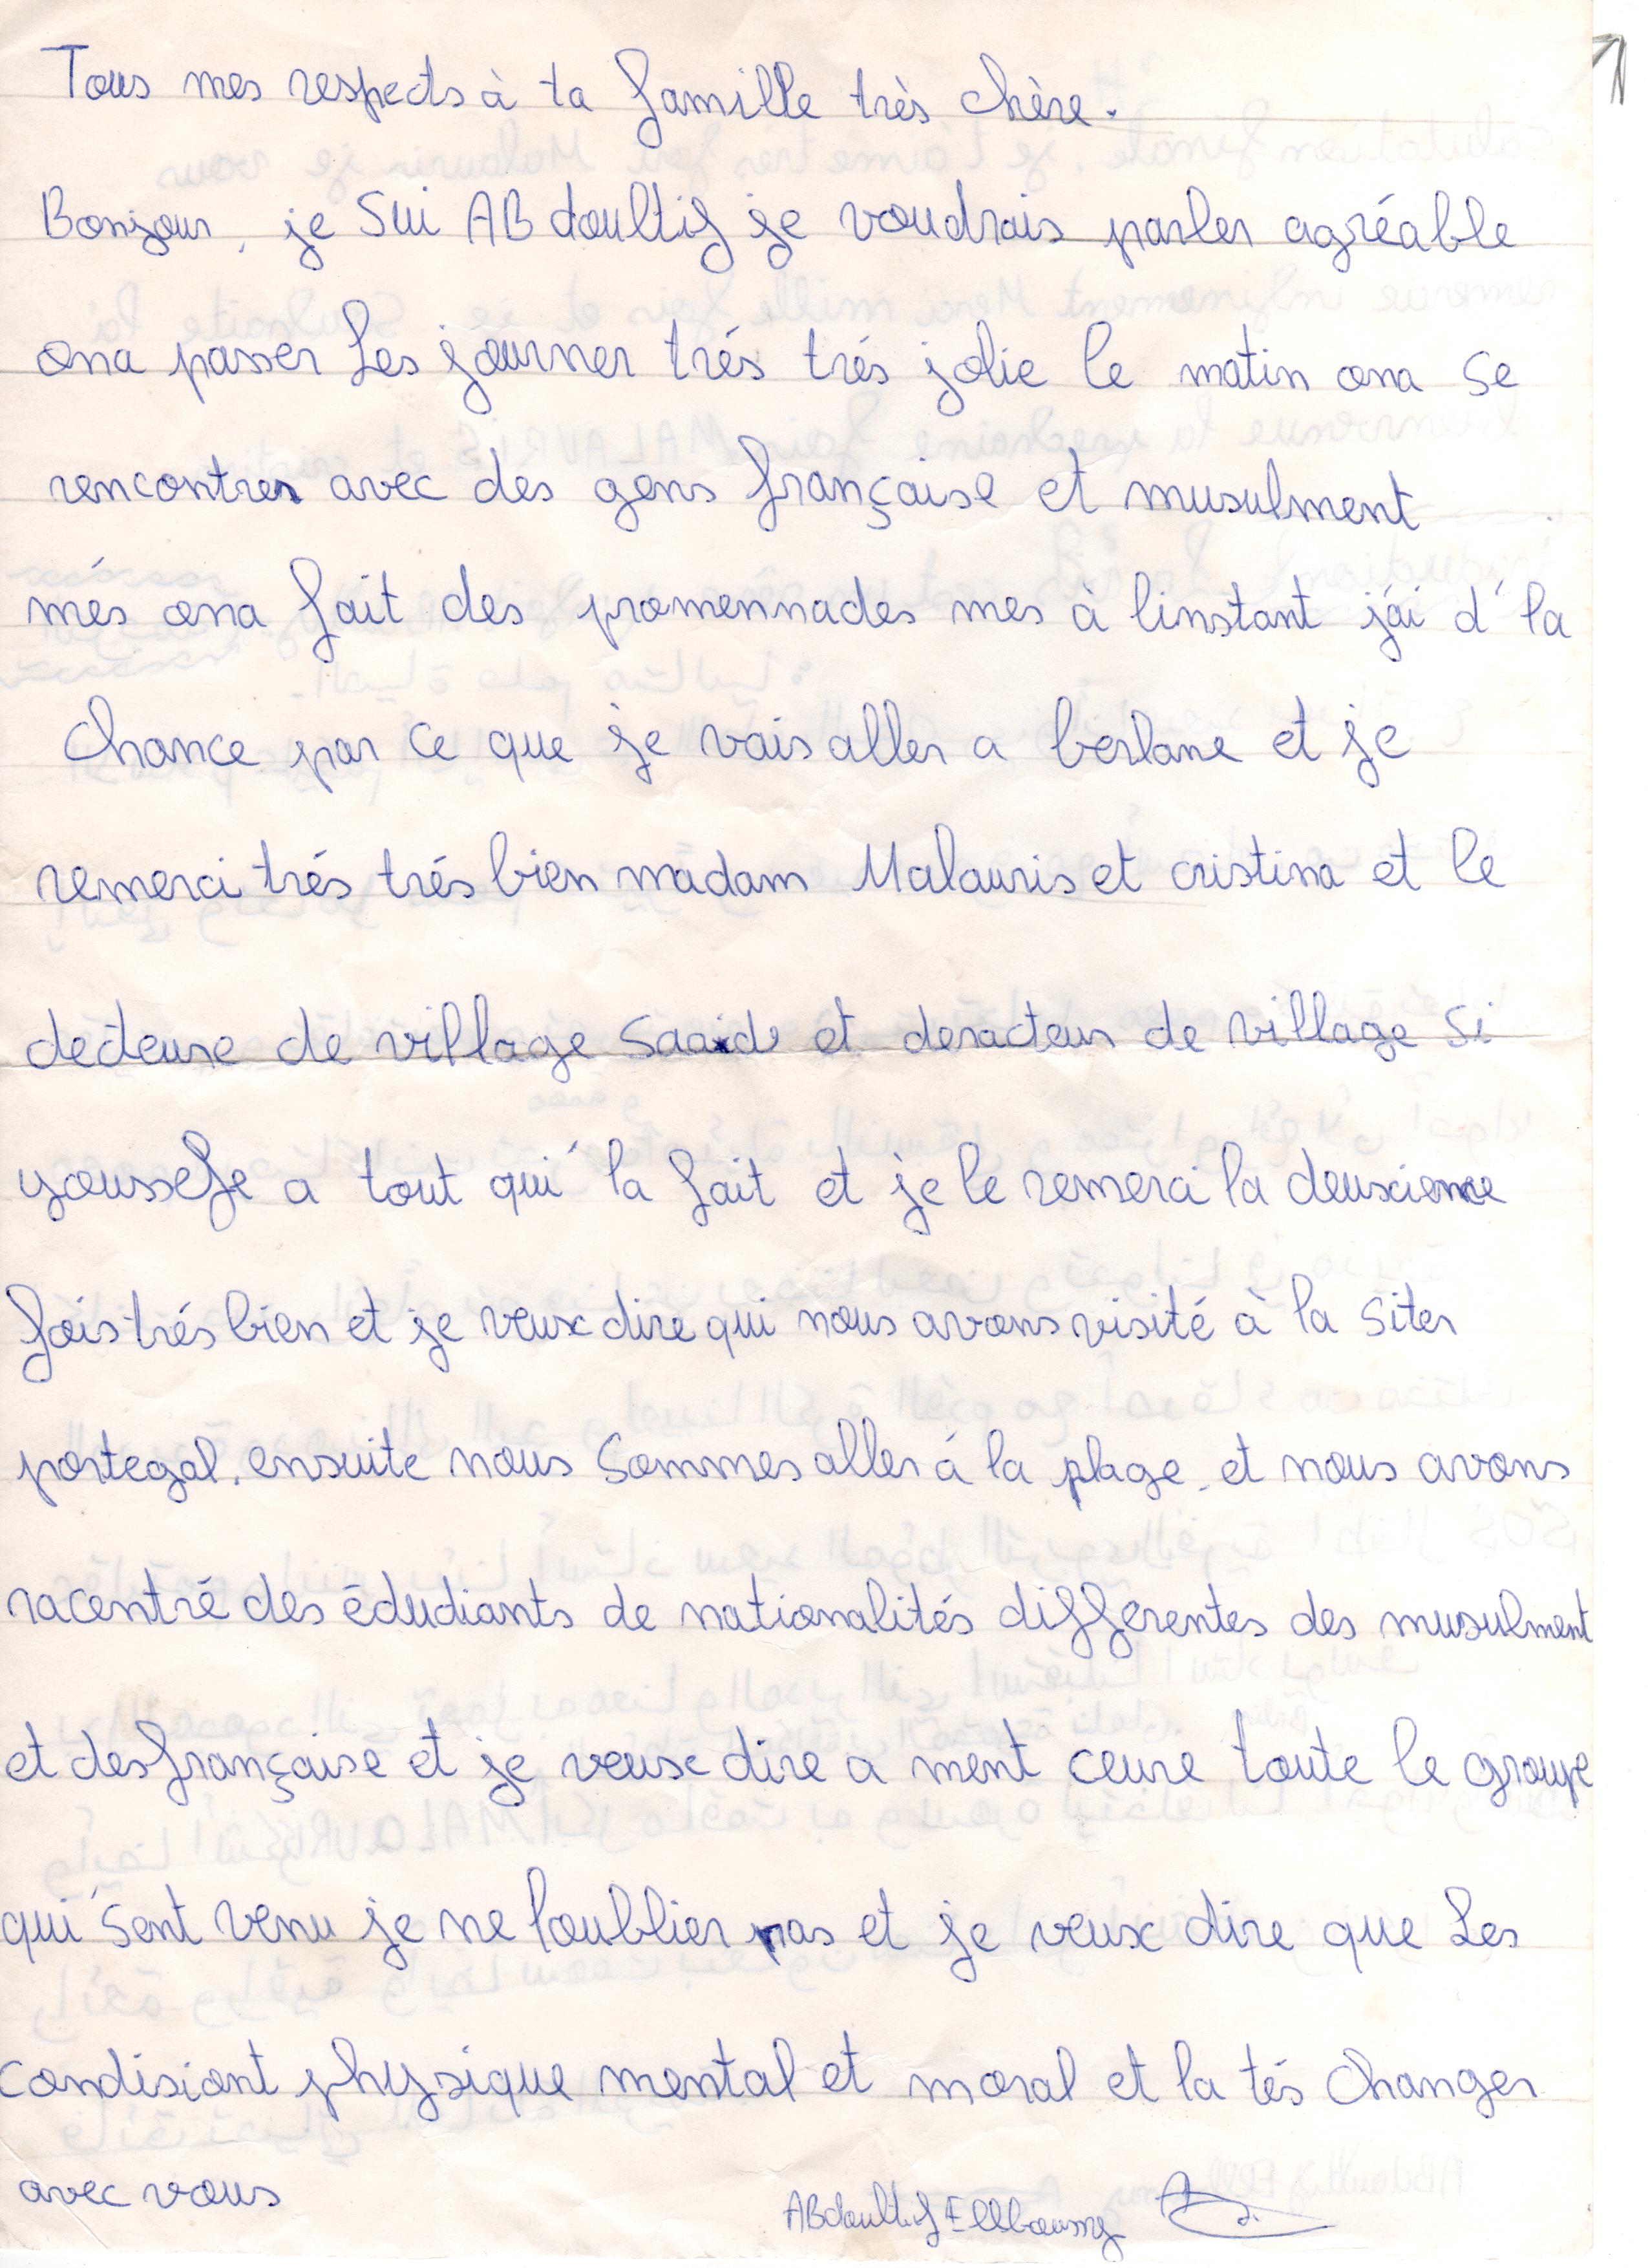 Tous mes respects à ta famille très chère.
Bonjour, je Sui ABdoultif je voudrais parler agréable
ona passer Les journer trés trés jolie le matin ona se
rencontrer avec des gens française et musulment
més ona fait des promennades mes à linstant j'ai d'la
chance par ce que je vais aller a berlane et je
remerci trés trés bien madam Malauris et cristina et le
decteure de village Saaid et deracteur de village Si
youssefe a tout qui'la fait et je le remerci la deuxieme
fois trés bien et je veux dire qui nous avons visité à la Siter
portegal. ensuite nous Sommes aller à la plage. et nous avons
racentré des édudiants de nationalités differentes des musulment
et des française et je veux dire a ment ceure toute le groupe
qui'sent venu je ne loublier pas et je veux dire que Les
condisiont physique mental et moral et la tés changer
avec vous
ABdoultif